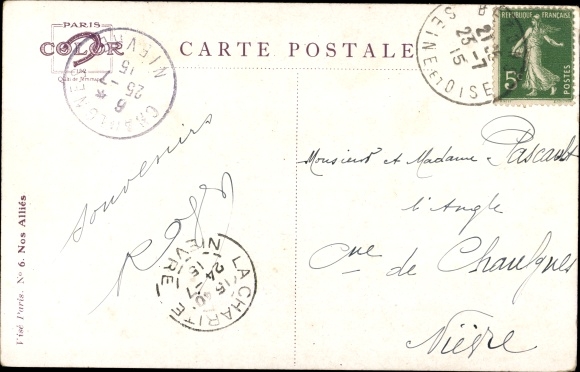 PARIS
COLOR
CARTE POSTALE
RÉPUBLIQUE FRANÇAISE
5c
POSTES
SEINE-ET-OISE
23-7
15
NIÈVRE
25-7
15
souvenirs
Roger
Monsieur et Madame Pascault
l'Angle
Cne de Chaulgnes
Nièvre
LA CHARITÉ
NIÈVRE
24-7
15
Visé Paris. No 6. Nos Alliés